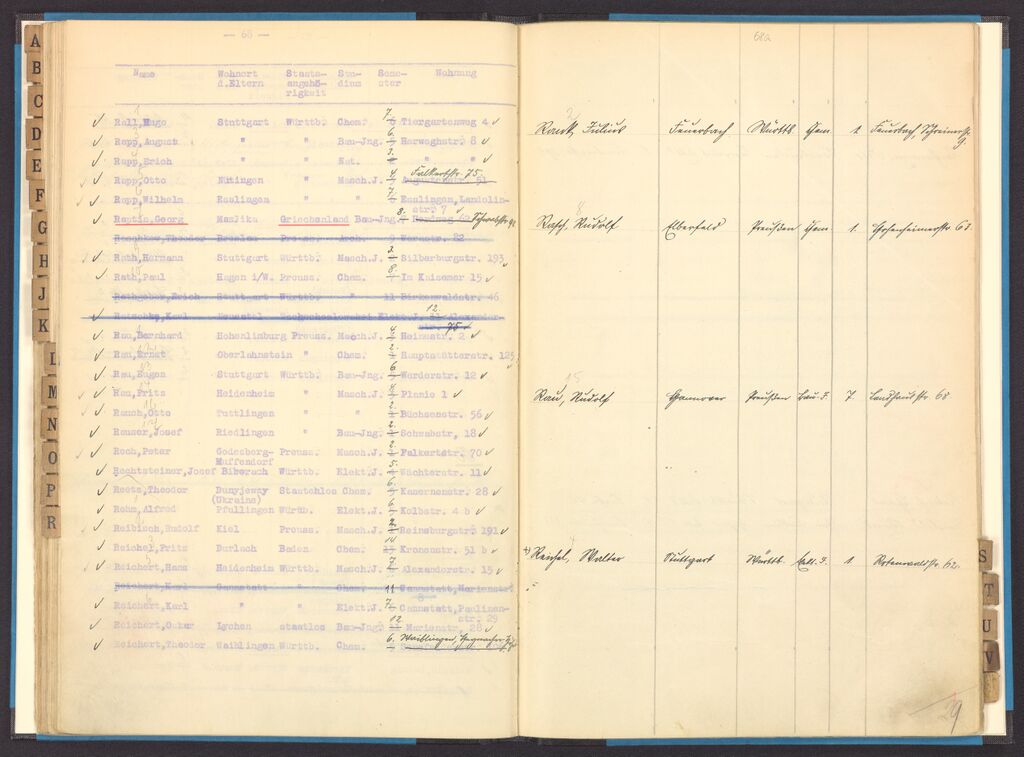 — 68 —
Name Wohnort Staats- Stu- Seme- Wohnung
d.Eltern angehö- dium ster
rigkeit
Rall, Hugo Stuttgart Württb. Chem. 7. Tiergartenweg 4
Rapp, August " " Bau-Jng. 6. Herweghstr 8
Rapp, Erich " " Nat. " "
Falkertstr. 75.
Rapp, Otto Nütingen " Masch.J. Augustenstr. 51
Rapp, Wilhelm Esslingen " 7. Esslingen, Landolin-
str 7
Raptis, Georg Griechenland Bau-Jng. 8. Herdweg 62
Raschkow, Theodor Breslau Preuss. Arch. 22
Rath, Hermann Stuttgart Württb. Masch.J. 2. Silberburgstr. 193
Rath, Paul Hagen i/W. Preuss. Chem. 8. Im Kaisemer 15
Rathgeber, Erich Stuttgart Württb. " 11 Birkenwaldstr. 46
Karl Elekt.J. 12. Alexander-
str. 75
Rau, Bernhard Hohenlimburg Preuss. Masch.J. 4. Heinestr. 2
Rau, Ernst Oberlahnstein " Chem. 2. Hauptstätterstr. 125
Rau, Eugen Stuttgart Württb. Bau-Jng. 6. Werderstr. 12
Rau, Fritz Heidenheim " Masch.J. Planie 1
Rauch, Otto Tuttlingen " " 2. Büchsenstr. 56
Rauser, Josef Riedlingen " Bau-Jng. 2. Schwabstr, 18
Rech, Peter Godesberg- Preuss. Masch.J. 2. Falkertstr. 70
Muffendorf
Rechtsteiner, Josef Biberach Württb. Elekt.J. 5. Wächterstr. 11
Theodor Dunyjewzy Staatenlos Chem. 6. Kasernenstr. 28
(Ukraine)
Rehm, Alfred Pfullingen Württb. Elekt.J. 6. Kolbstr. 4 b
Reibisch, Rudolf Kiel Preuss. Masch.J. 2. Reinsburgstr 191
Reichel, Fritz Durlach Baden Chem. 10 Kronenstr. 51 b
Reichert, Hans Heidenheim Württb. Masch.J. Alexanderstr. 15
Reichert, Karl Cannstatt " Chem. 11 Cannstatt, Marienstr
Reichert, Karl " " Elekt.J. 7. Cannstatt, Paulinen-
str. 29
Reichert, Oskar Lychen staatlos Bau-Jng. 12. Marienstr. 28
Reichert, Theodor Waiblingen Württb. Chem. 6. Waiblingen,
68a
Rank, Julius Feuerbach Württb. Chem. 2. Feuerbach, Schreinerstr.
9.
Rasch, Rudolf Elberfeld Preußen Chem. 1. Hohenheimerstr 67.
Rau, Rudolf Hannover Preußen Bau-J. 7 Landhausstr 68
Reichel, Walter Stuttgart Württb. Masch. J. 1. Rotenwaldstr. 62.
29
A
B
C
D
E
F
G
H
J
K
L
M
N
O
P
R
S
T
U
V